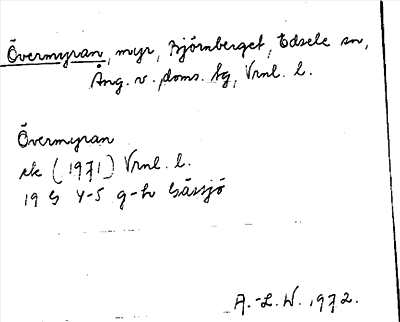 Övermyran, myr, Björnberget, Edsele sn,
Ång. v. doms. tg, Vrnl. l.
Övermyran
ek (1971) Vrnl. l.
19 G 4-5 g-h Gåssjö
A.-L. W. 1972.